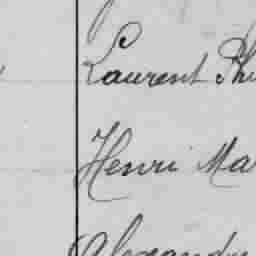 Laurent Phi
Henri Ma
Alexandre